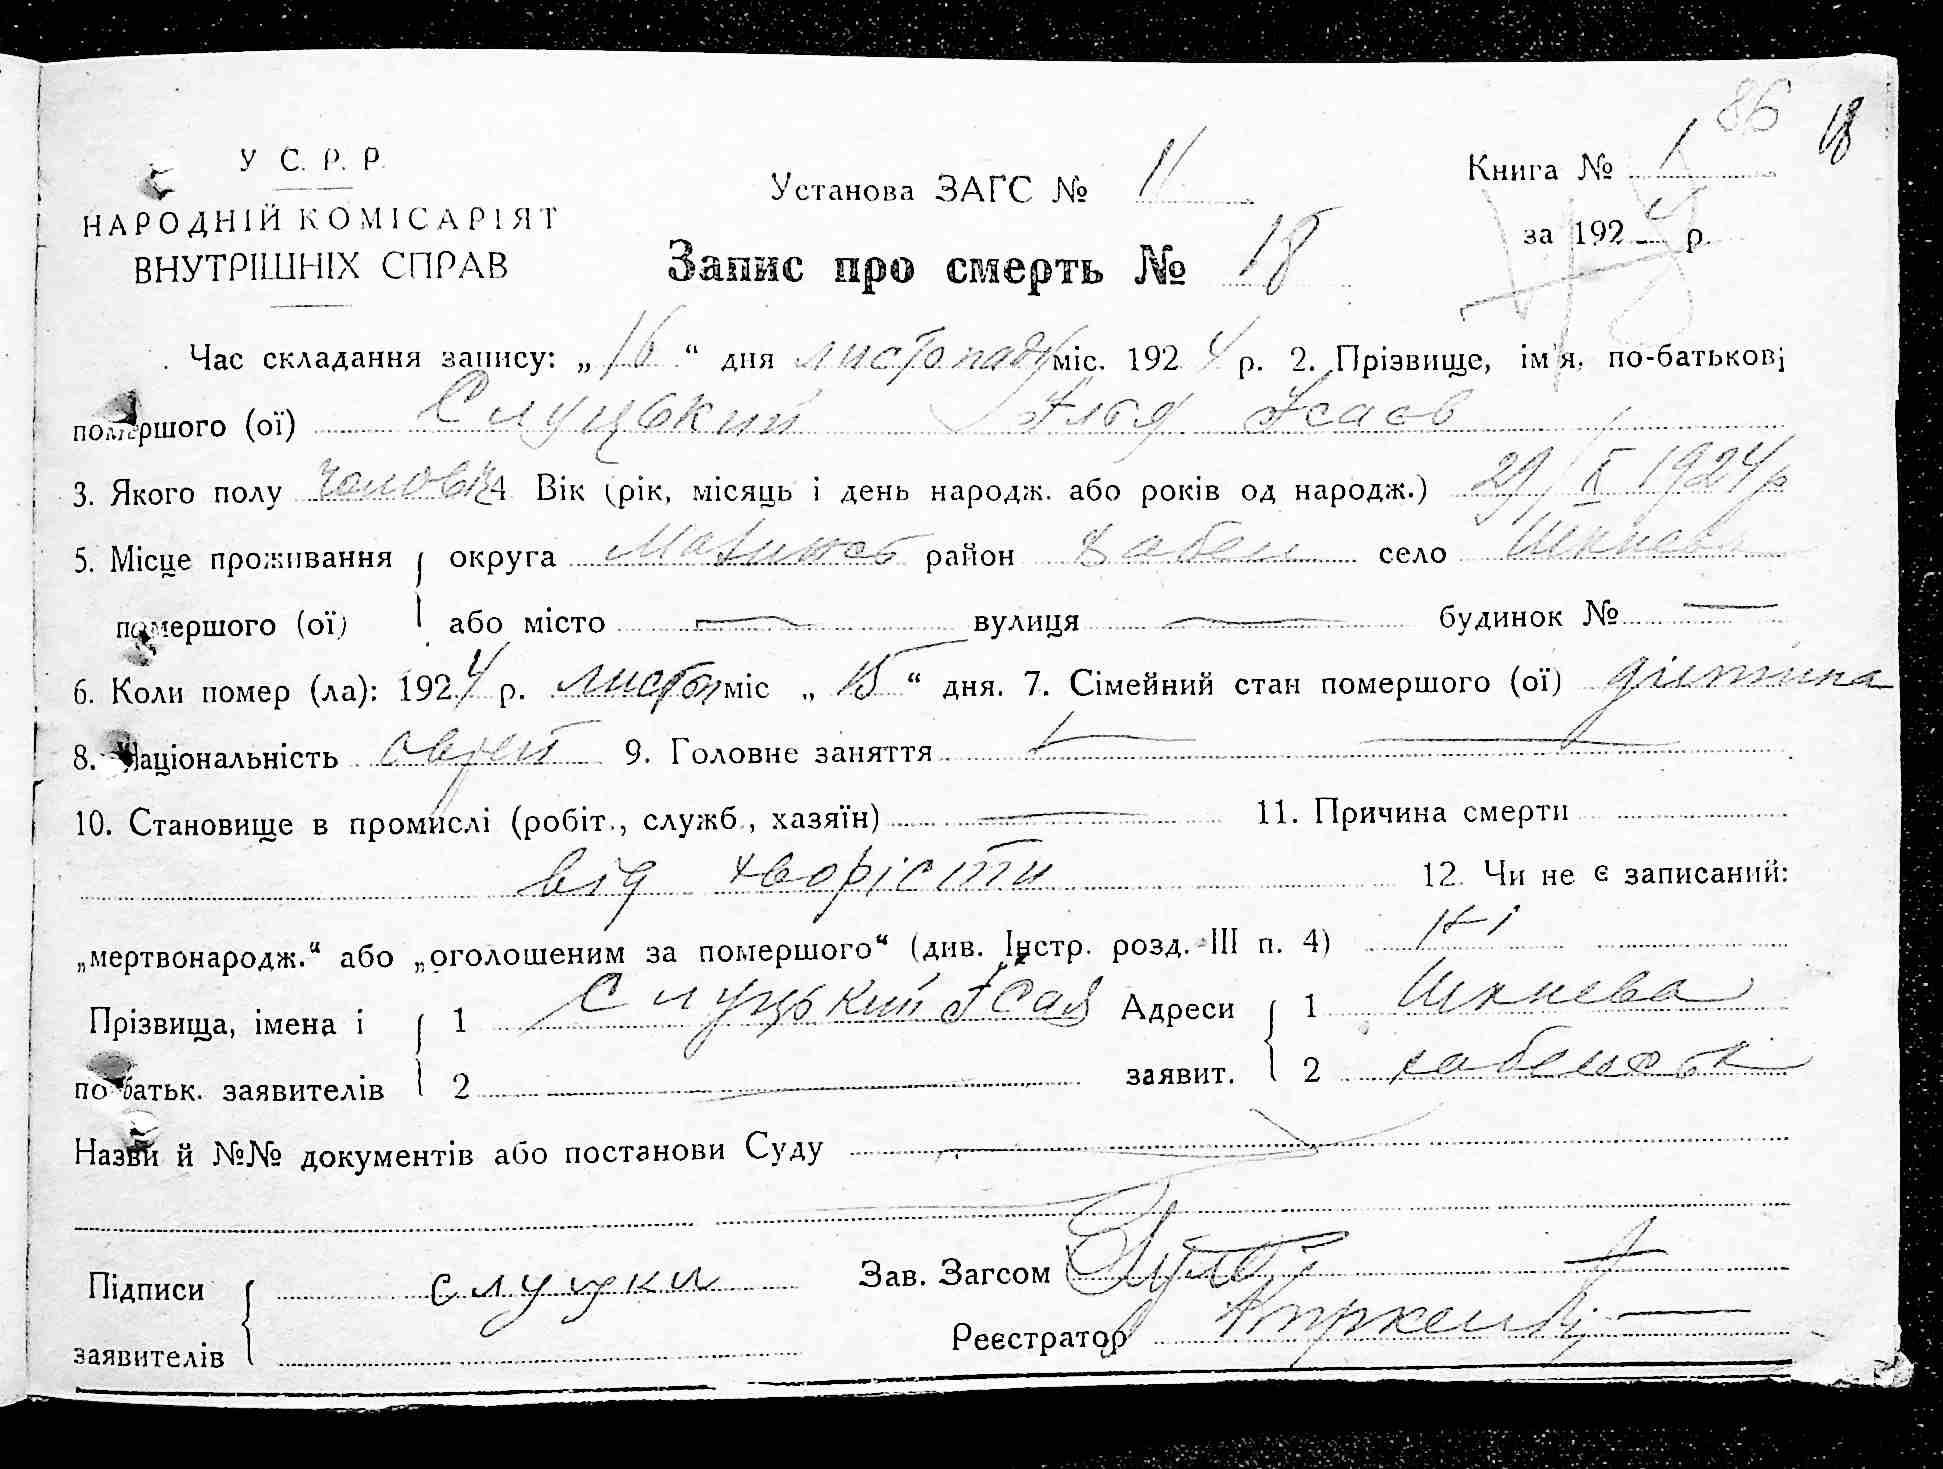 86 18
У С. Р. Р.
НАРОДНІЙ КОМІСАРІЯТ
ВНУТРІШНІХ СПРАВ
Установа ЗАГС № 11
Книга № 1
за 1924 р.
Запис про смерть № 18
Час складання запису: „16“ дня листопаду міс. 1924 р. 2. Прізвище, ім'я, по-батькові
помершого (ої) Слуцький Ілья Ісаєв
3. Якого полу чоловіч 4 Вік (рік, місяць і день народж. або років од народж.) 29/X 1924 р
5. Місце проживання округа район село
помершого (ої) або місто — вулиця — будинок № —
6. Коли помер (ла): 1924 р. листоп міс „15“ дня. 7. Сімейний стан помершого (ої) дитина
8. Національність єврей 9. Головне заняття —
10. Становище в промислі (робіт., служб., хазяїн) — 11. Причина смерти
від хворісти 12. Чи не є записаний:
„мертвонародж.“ або „оголошеним за помершого“ (див. Інстр. розд. III п. 4) Ні
Прізвища, імена і 1 Слуцький Ісай Адреси 1
по батьк. заявителів 2 — заявит. 2
Назви й №№ документів або постанови Суду
Підписи слуцки Зав. Загсом
заявителів Реєстратор